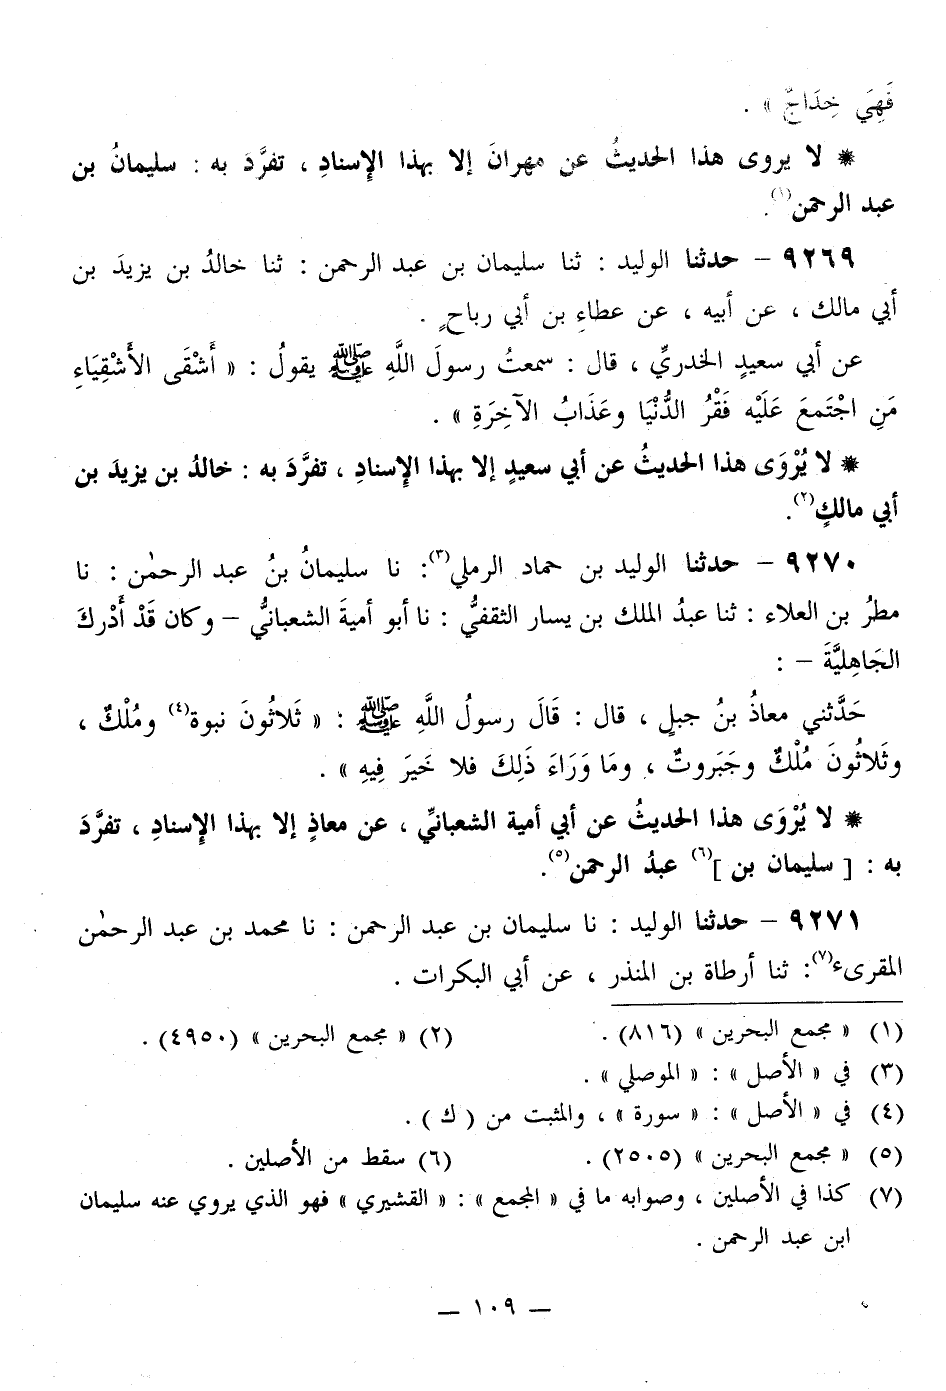 فَهِيَ خِدَاجٌ » .
* لا يروى هذا الحديثُ عن مهرانَ إلا بهذا الإِسنادِ ، تفرَّدَ به : سليمانُ بن
عبد الرحمن(١).
٩٢٦٩ – حدثنا الوليد : ثنا سليمان بن عبد الرحمن : ثنا خالدُ بن يزيدَ بن
أبي مالك ، عن أبيه ، عن عطاءِ بن أبي رباحٍ .
عن أبي سعيدٍ الخدريِّ ، قال : سمعتُ رسولَ اللَّهِ ﷺ يقولُ : « أَشْقَى الأَشْقِيَاءِ
مَنِ اجْتَمعَ عَلَيْه فَقْرُ الدُّنْيَا وعَذَابُ الآخِرَةِ » .
* لا يُرْوَى هذا الحديثُ عن أبي سعيدٍ إلا بهذا الإِسنادِ ، تفرَّدَ به : خالدُ بن يزيدَ بن
أبي مالكٍ(٢).
٩٢٧٠ – حدثنا الوليد بن حماد الرملي(٣): نا سليمانُ بنُ عبد الرحمٰن : نا
مطرُ بن العلاء : ثنا عبدُ الملك بن يسار الثقفيُّ : نا أبو أميةَ الشعبانيُّ – وكان قَدْ أَدْركَ
الجَاهِليَّةَ – :
حَدَّثني معاذُ بنُ جبلٍ ، قال : قَالَ رسولُ اللَّهِ ﷺ : « ثَلاثُونَ نبوة(٤) ومُلْكٌ ،
وثَلاثُونَ مُلْكٌ وجَبَروتٌ ، ومَا وَرَاءَ ذَلِكَ فلا خَيرَ فِيهِ » .
* لا يُرْوَى هذا الحديثُ عن أبي أمية الشعبانيِّ ، عن معاذٍ إلا بهذا الإِسنادِ ، تفرَّدَ
به : [ سليمان بن ](٦) عبدُ الرحمن(٥).
٩٢٧١ – حدثنا الوليد : نا سليمان بن عبد الرحمن : نا محمد بن عبد الرحمٰن
المقرىء(٧): ثنا أرطاة بن المنذر ، عن أبي البكرات .
(١) « مجمع البحرين » (٨١٦) . (٢) « مجمع البحرين » (٤٩٥٠) .
(٣) في « الأصل » : « الموصلي » .
(٤) في « الأصل » : « سورة » ، والمثبت من ( ك ) .
(٥) « مجمع البحرين » (٢٥٠٥) . (٦) سقط من الأصلين .
(٧) كذا في الأصلين ، وصوابه ما في « المجمع » : « القشيري » فهو الذي يروي عنه سليمان
ابن عبد الرحمن .
— ١٠٩ —